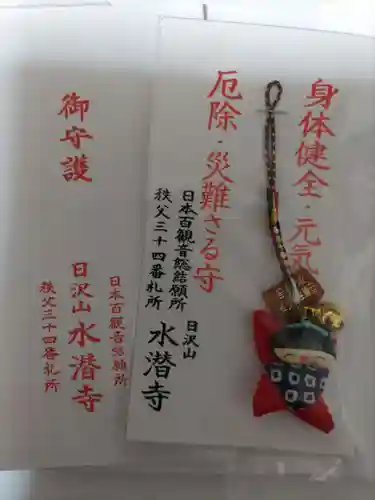 身体健全・元気
厄除・災難さる守
日本百観音総結願所
秩父三十四番札所
日沢山
水潜寺
御守護
日本百観音総結願所
秩父三十四番札所
日沢山 水潜寺